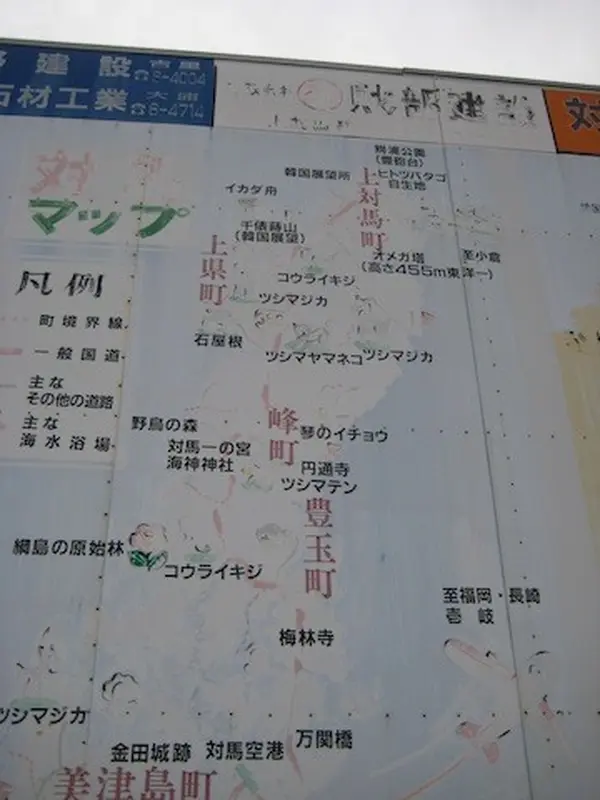 建設
吉里
☎8-4004
石材工業
大浦
☎6-4714
財部建設
対
対
マップ
凡例
町境界線
一般国道
主な
その他の道路
主な
海水浴場
(豊砲台)
韓国展望所
ヒトツバタゴ
自生地
上対馬町
イカダ舟
千俵蒔山
(韓国展望)
オメガ塔
(高さ455m東洋一)
至小倉
上県町
コウライキジ
ツシマジカ
石屋根
ツシマヤマネコ
ツシマジカ
峰町
琴のイチョウ
野鳥の森
対馬一の宮
海神神社
円通寺
ツシマテン
豊玉町
綱島の原始林
コウライキジ
至福岡・長崎
壱岐
梅林寺
ツシマジカ
金田城跡
対馬空港
万関橋
美津島町